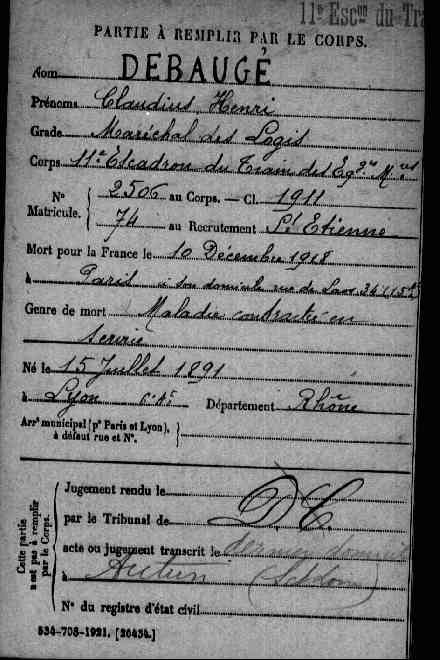 11e Escon du Tra
PARTIE À REMPLIR PAR LE CORPS.
Nom DEBAUGÉ
Prénoms Claudius Henri
Grade Maréchal des Logis
Corps 11e Escadron du Train des Eq
No Matricule. { 2506 au Corps. — Cl. 1911
74 au Recrutement St Etienne
Mort pour la France le 10 Décembre 1918
à Paris à son domicile rue de 34 (15e)
Genre de mort Maladie contractée en
service
Né le 15 Juillet 1891
à Lyon 6e Art Département Rhône
Arrt municipal (pr Paris et Lyon), à défaut rue et No. }
Cette partie n'est pas à remplir par le Corps.
Jugement rendu le
par le Tribunal de DC
acte ou jugement transcrit le dernier domicile
à Autun
No du registre d'état civil
534-708-1921. [26434.]